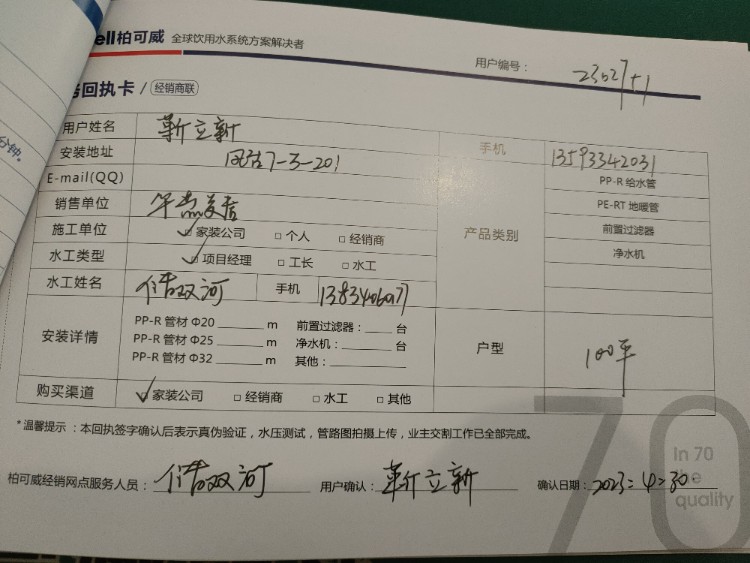 ell柏可威 全球饮用水系统方案解决者
用户编号： 23027+1
回执卡 / 经销商联
用户姓名 靳立新 手机 13593342031
安装地址 7-3-201
E-mail(QQ)
销售单位
产品类别
PP-R 给水管
PE-RT 地暖管
前置过滤器
净水机
施工单位 家装公司 个人 经销商
水工类型 项目经理 工长 水工
水工姓名 双河 手机
安装详情
PP-R 管材 Φ20 m 前置过滤器： 台
PP-R 管材 Φ25 m 净水机： 台
PP-R 管材 Φ32 m 其他：
户型 100平
购买渠道 家装公司 经销商 水工 其他
*温馨提示：本回执签字确认后表示真伪验证，水压测试，管路图拍摄上传，业主交割工作已全部完成。
柏可威经销网点服务人员： 双河 用户确认： 靳立新 确认日期： 2023.4.30
70
In 70
the
quality
分钟。